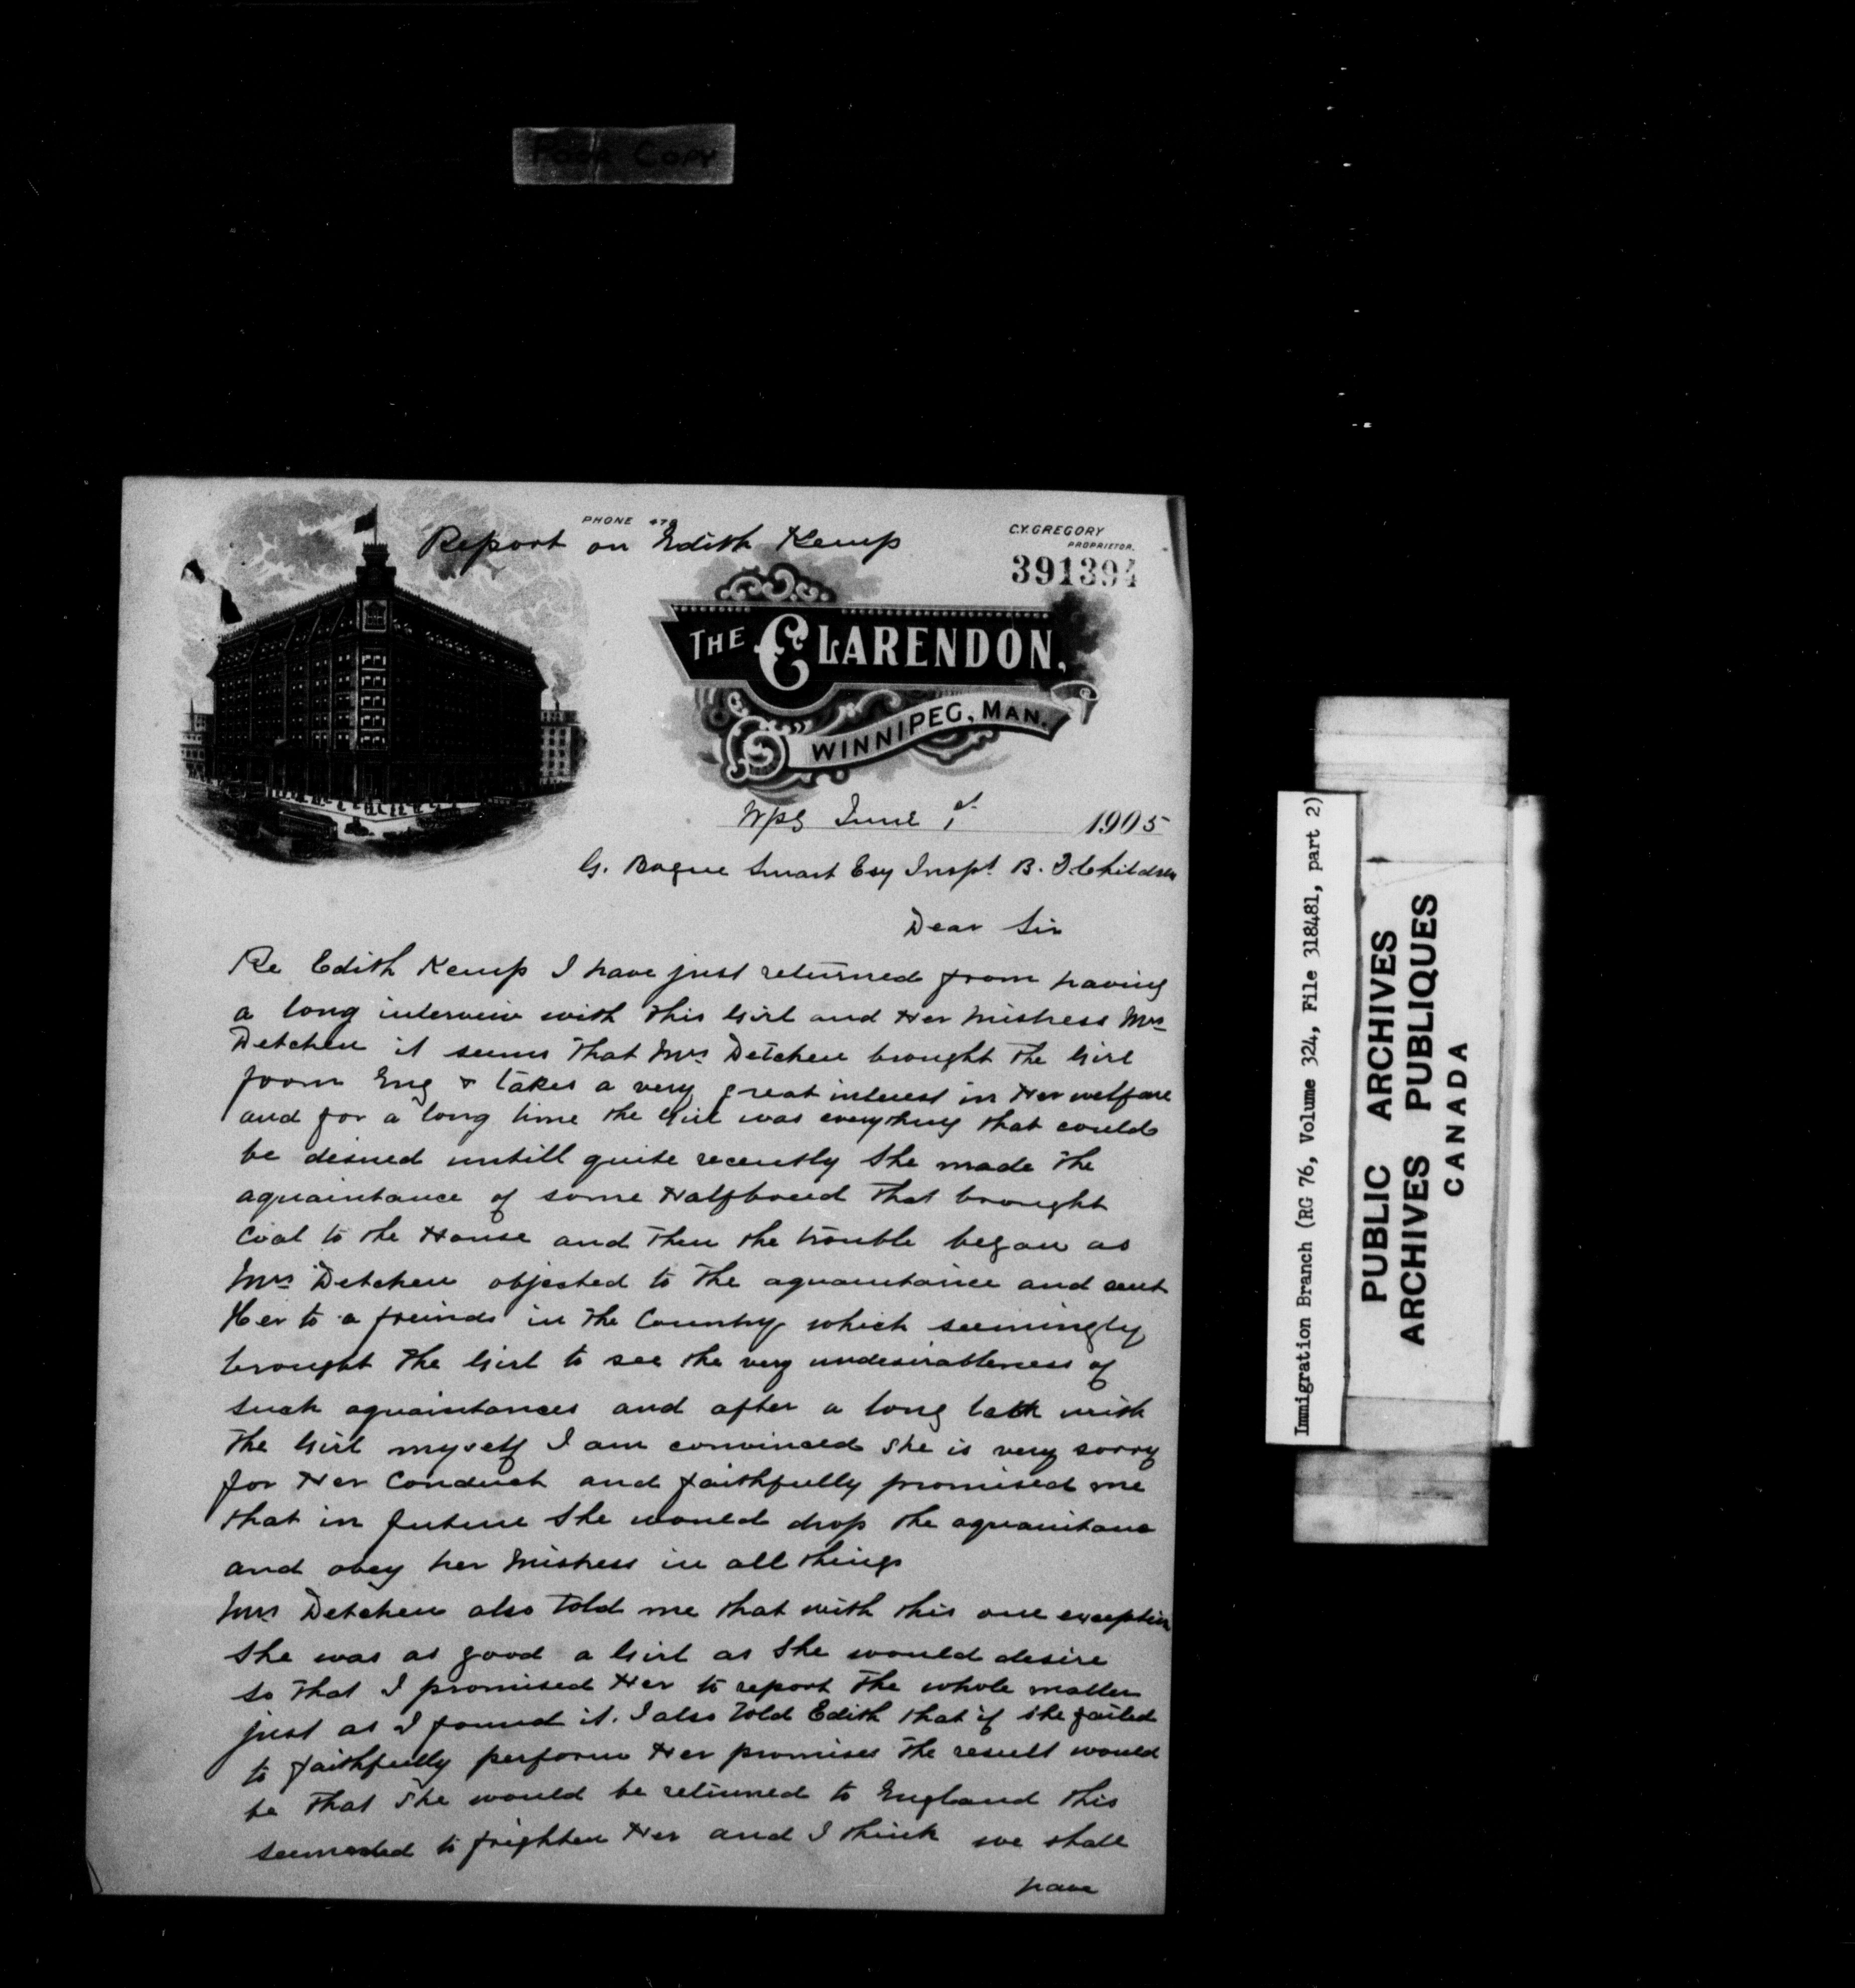 Poor Copy
PHONE 470
Report on Edith Kemp
C.Y. GREGORY
PROPRIETOR.
391394
THE CLARENDON,
WINNIPEG, MAN.
Wpg June 1st 1905
G. Bogue Smart Esq Inspt B. I Children
Dear Sir
Re Edith Kemp I have just returned from having
a long interview with this Girl and Her Mistress Mrs
Detchen it seems that Mrs Detchen brought the Girl
from Eng & takes a very great interest in Her welfare
and for a long time the Girl was everything that could
be desired untill quite recently She made the
aquaintance of some Halfbreed that brought
Coal to the House and then the trouble began as
Mrs Detchen objected to the aquaintance and sent
Her to a freinds in the Country which seemingly
brought the Girl to see the very undesirableness of
such aquaintances and after a long talk with
the Girl myself I am convinced She is very sorry
for Her Conduct and faithfully promised me
that in future She would drop the aquaintance
and obey her Mistress in all things
Mrs Detchen also told me that with this one exception
She was as good a Girl as She would desire
so that I promised Her to report the whole matter
just as I found it. I also told Edith that if she failed
to faithfully perform Her promises the result would
be that She would be returned to England this
seemeded to frighten Her and I think we shall
have
Immigration Branch (RG 76, Volume 324, File 318481, part 2)
PUBLIC ARCHIVES
ARCHIVES PUBLIQUES
CANADA